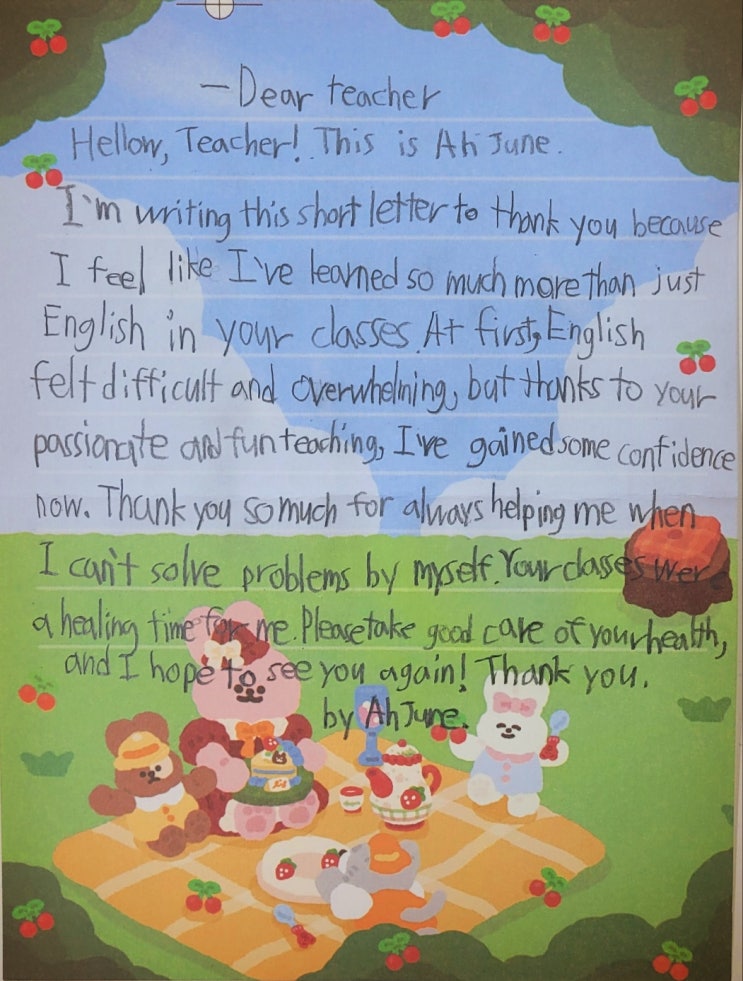 - Dear teacher
Hellow, Teacher! This is Ah June.
I'm writing this short letter to thank you because
I feel like I've learned so much more than just
English in your classes. At first, English
felt difficult and overwhelming, but thanks to your
passionate and fun teaching, I've gained some confidence
now. Thank you so much for always helping me when
I can't solve problems by myself. Your classes wer
a healing time for me. Please take good care of your health,
and I hope to see you again! Thank you.
by Ah June.